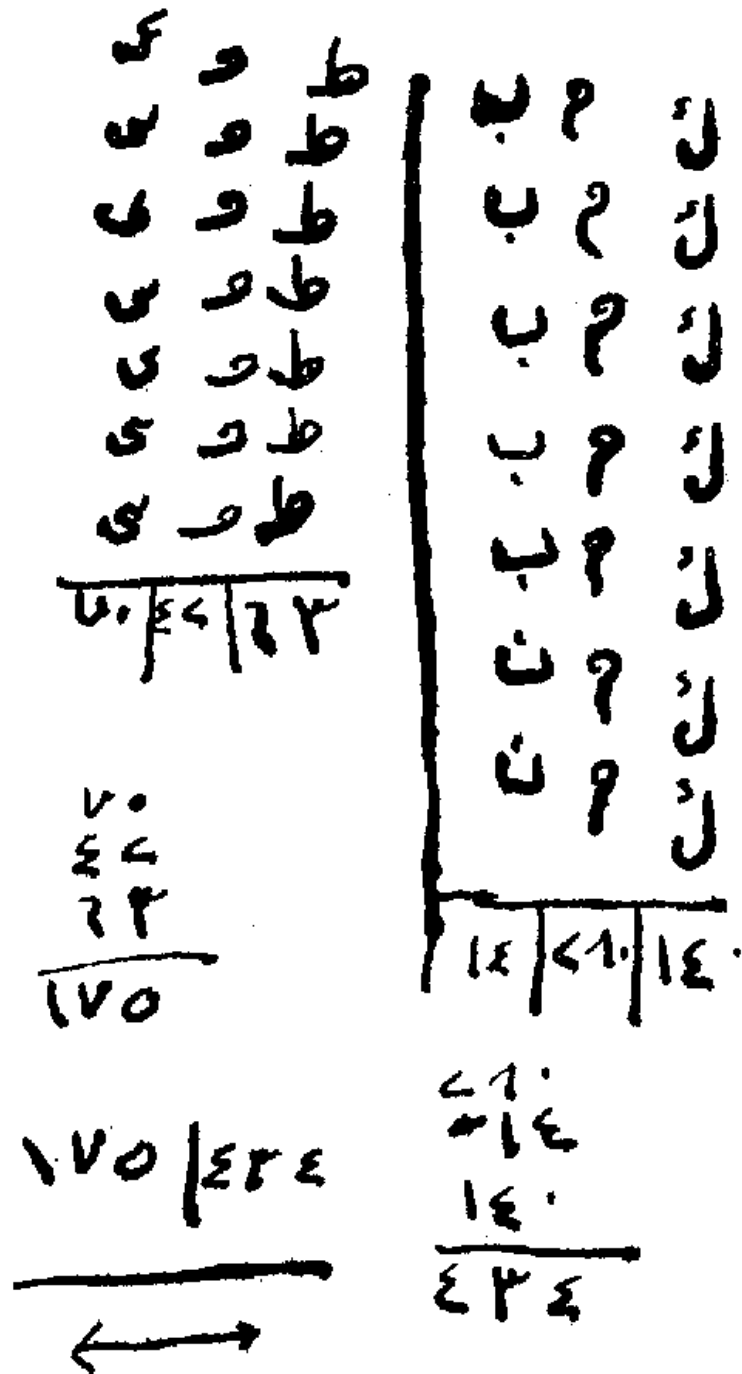 ك م ب
ك م ب
ك م ب
ك م ب
ك م ب
ك م ن
ك م ن
١٤٠ | ٢٨٠ | ١٤
٢٨٠
١٤
١٤٠
٤٣٤
ط و ى
ط و ى
ط و ى
ط و ى
ط و ى
ط و ى
ط و ى
٦٣ | ٤٢ | ٧٠
٧٠
٤٢
٦٣
١٧٥
٤٣٤ | ١٧٥